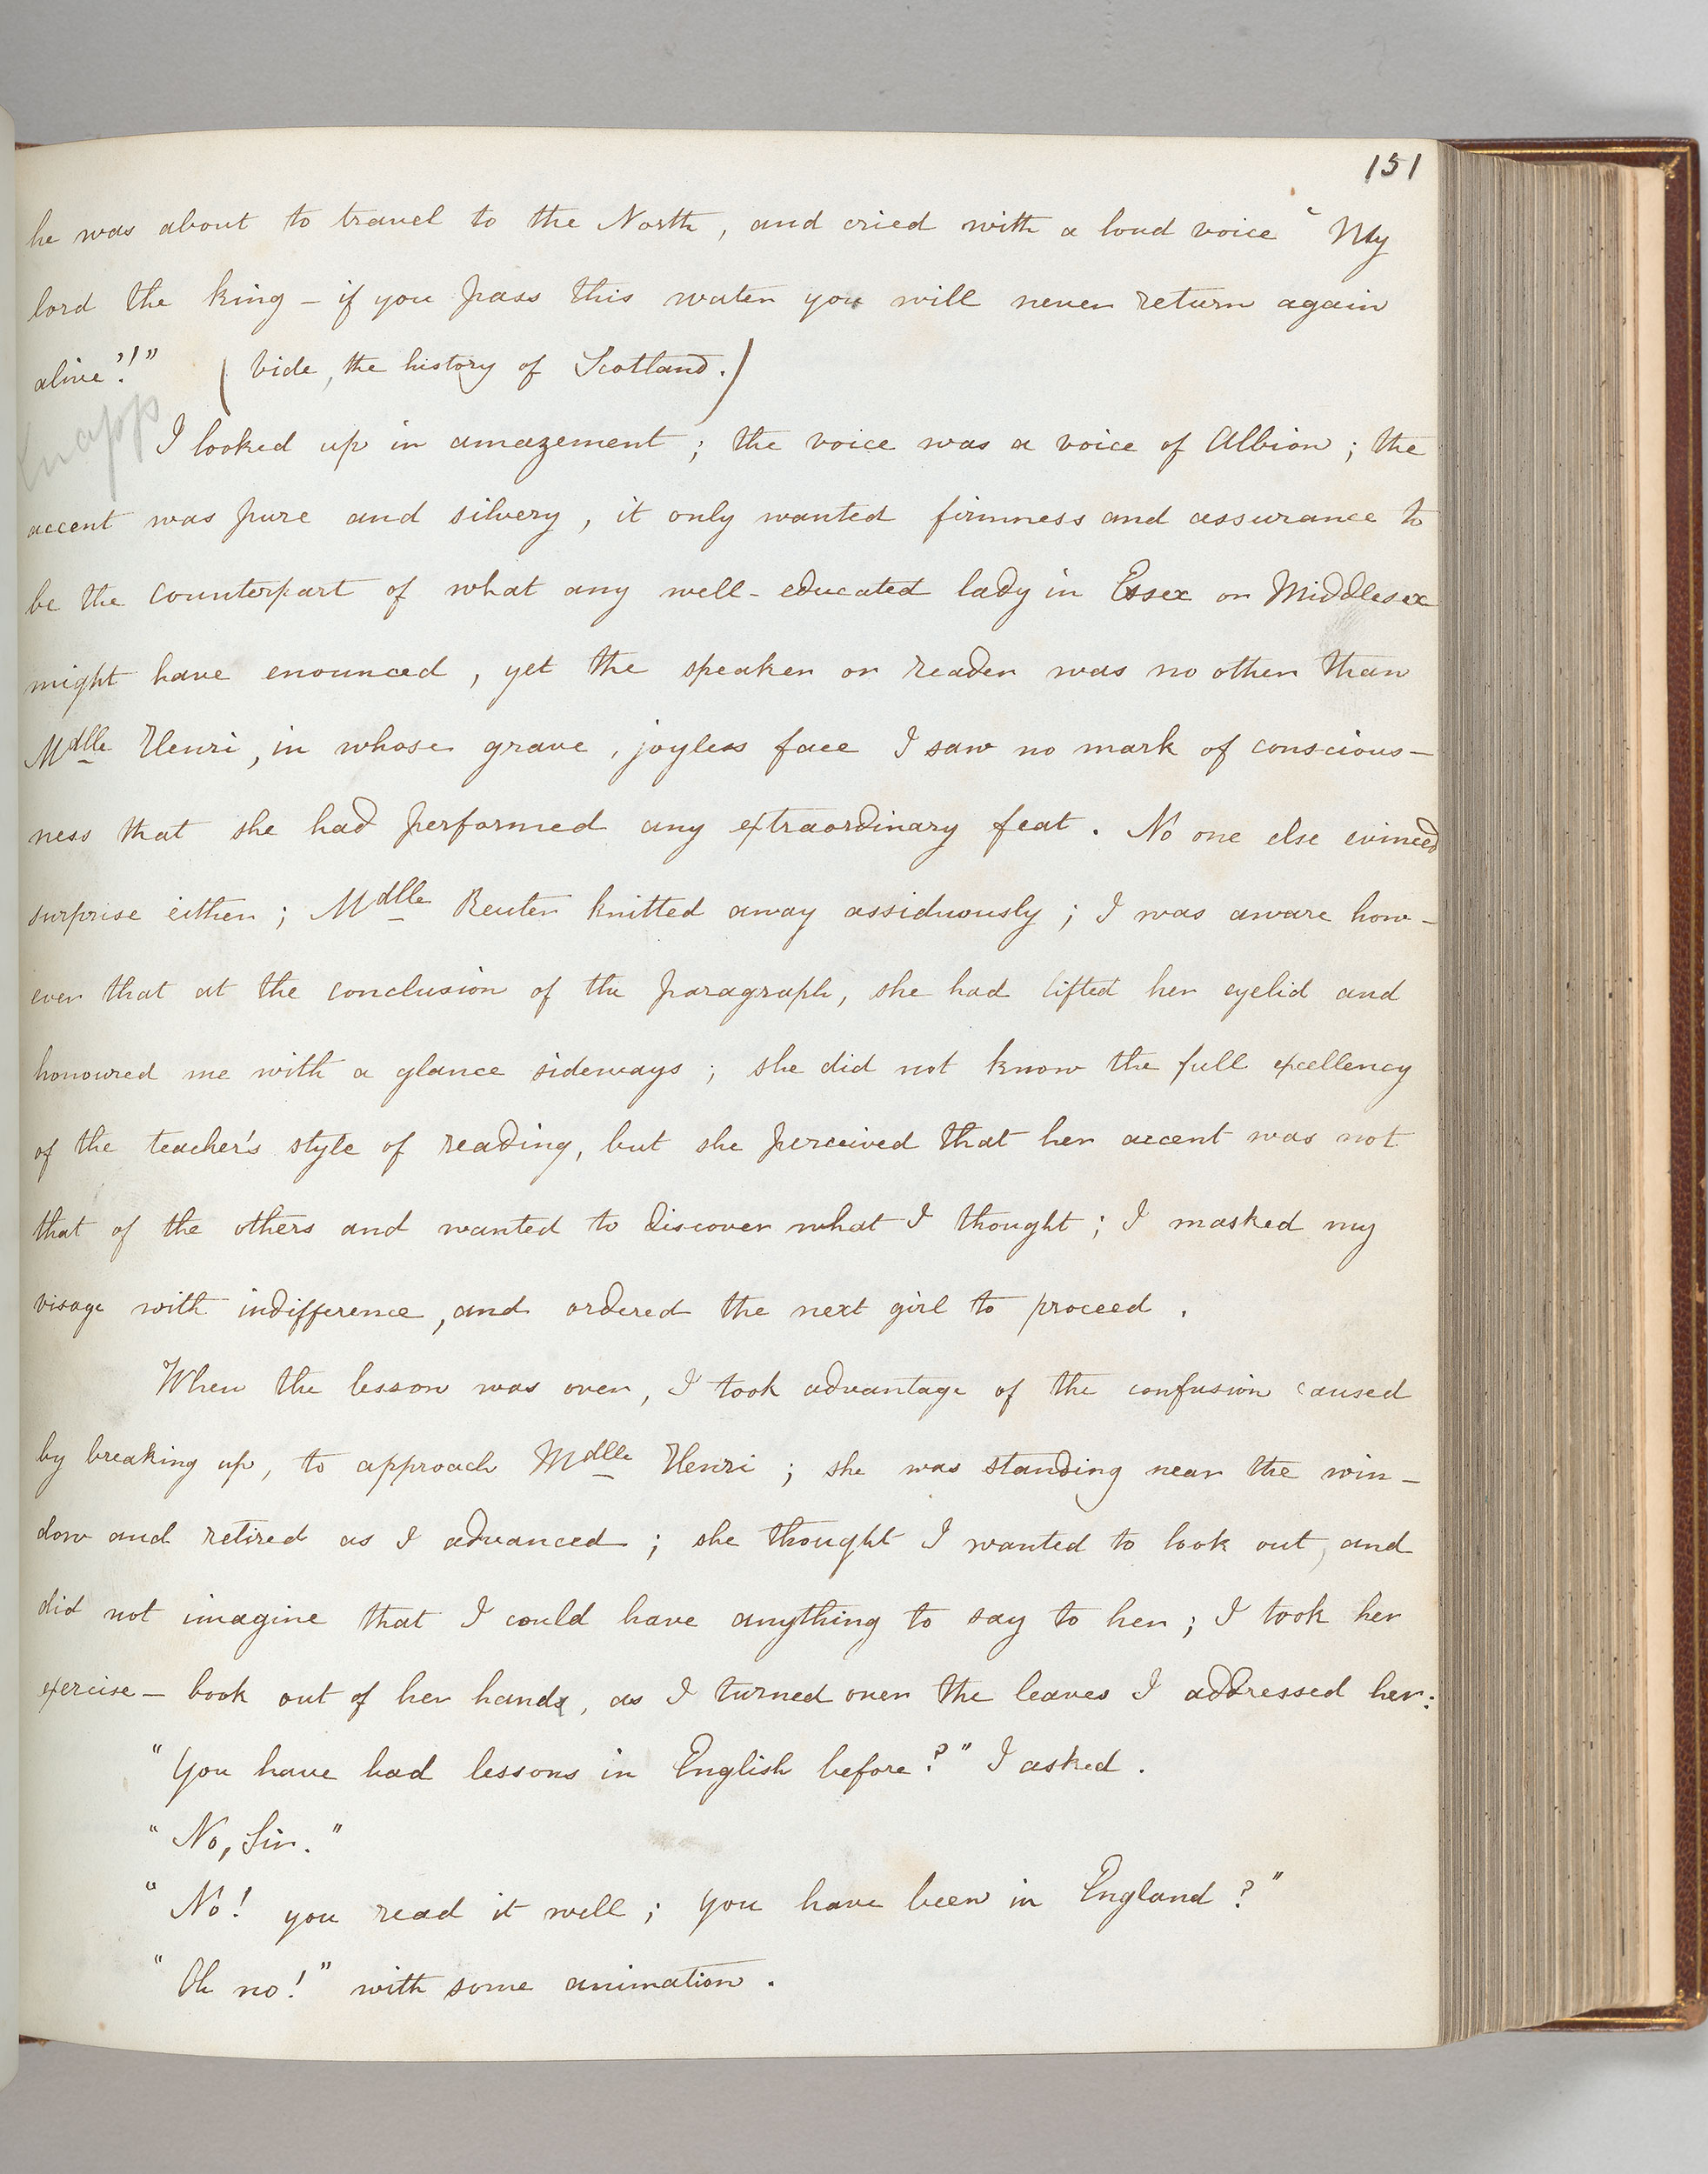 151
he was about to travel to the North, and cried with a loud voice ‘My
lord the king – if you pass this water you will never return again
alive’!” (vide, the history of Scotland.)
Knapp
I looked up in amazement; the voice was a voice of Albion; the
accent was pure and silvery, it only wanted firmness and assurance to
be the counterpart of what any well-educated lady in Essex or Middlesex
might have enounced, yet the speaker or reader was no other than
Mdlle Henri, in whose grave, joyless face I saw no mark of conscious-
ness that she had performed any extraordinary feat. No one else evinced
surprise either; Mdlle Reuter knitted away assiduously; I was aware how-
ever that at the conclusion of the paragraph, she had lifted her eyelid and
honoured me with a glance sideways; she did not know the full excellency
of the teacher's style of reading, but she perceived that her accent was not
that of the others and wanted to discover what I thought; I masked my
visage with indifference, and ordered the next girl to proceed.
When the lesson was over, I took advantage of the confusion caused
by breaking up, to approach Mdlle Henri; she was standing near the win-
dow and retired as I advanced; she thought I wanted to look out, and
did not imagine that I could have anything to say to her; I took her
exercise-book out of her hand, as I turned over the leaves I addressed her:
“You have had lessons in English before?” I asked.
“No, Sir.”
“No! you read it well; you have been in England?”
“Oh no!” with some animation.